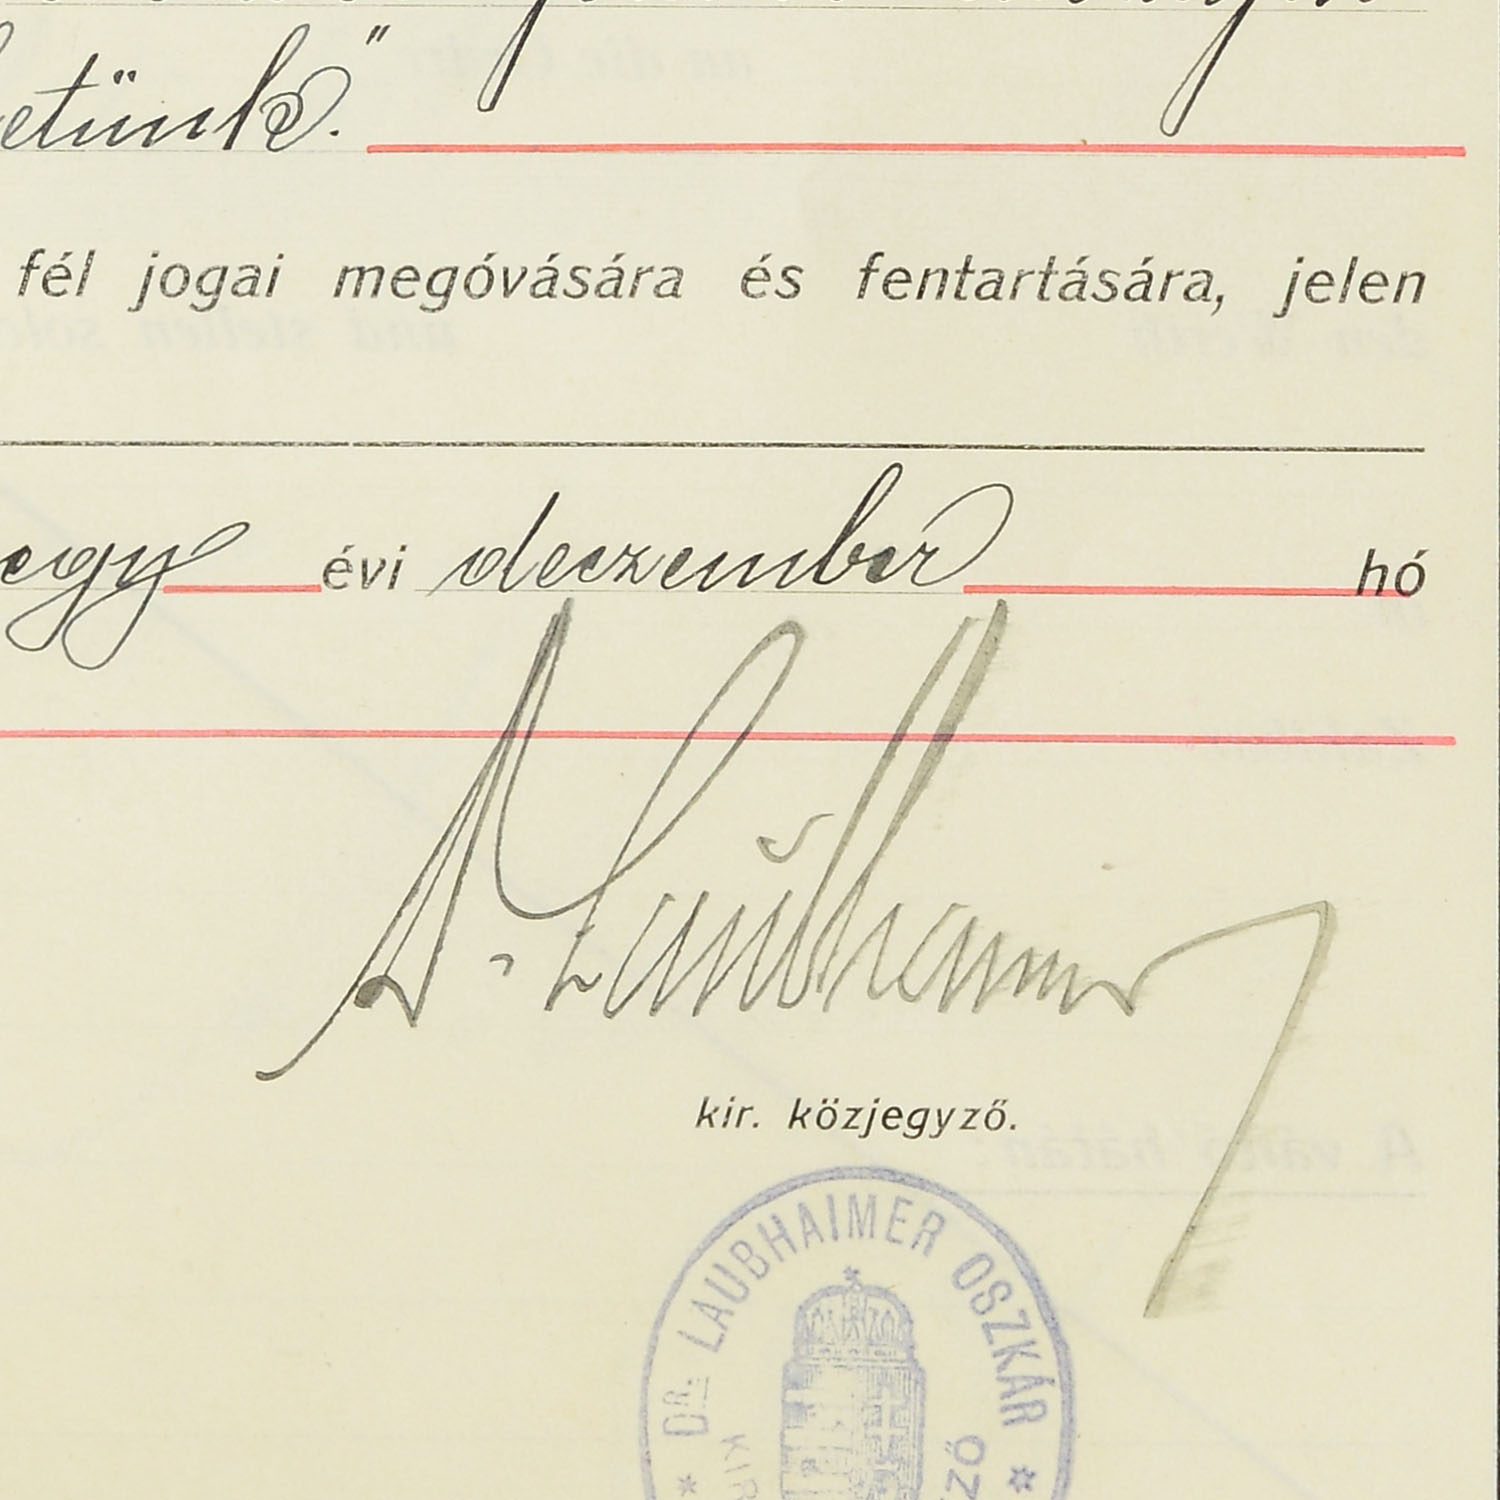 etünk."
fél jogai megóvására és fentartására, jelen
egy évi deczember hó
Dr. Laubhaimer
kir. közjegyző.
* DR. LAUBHAIMER OSZKÁR *
KIR